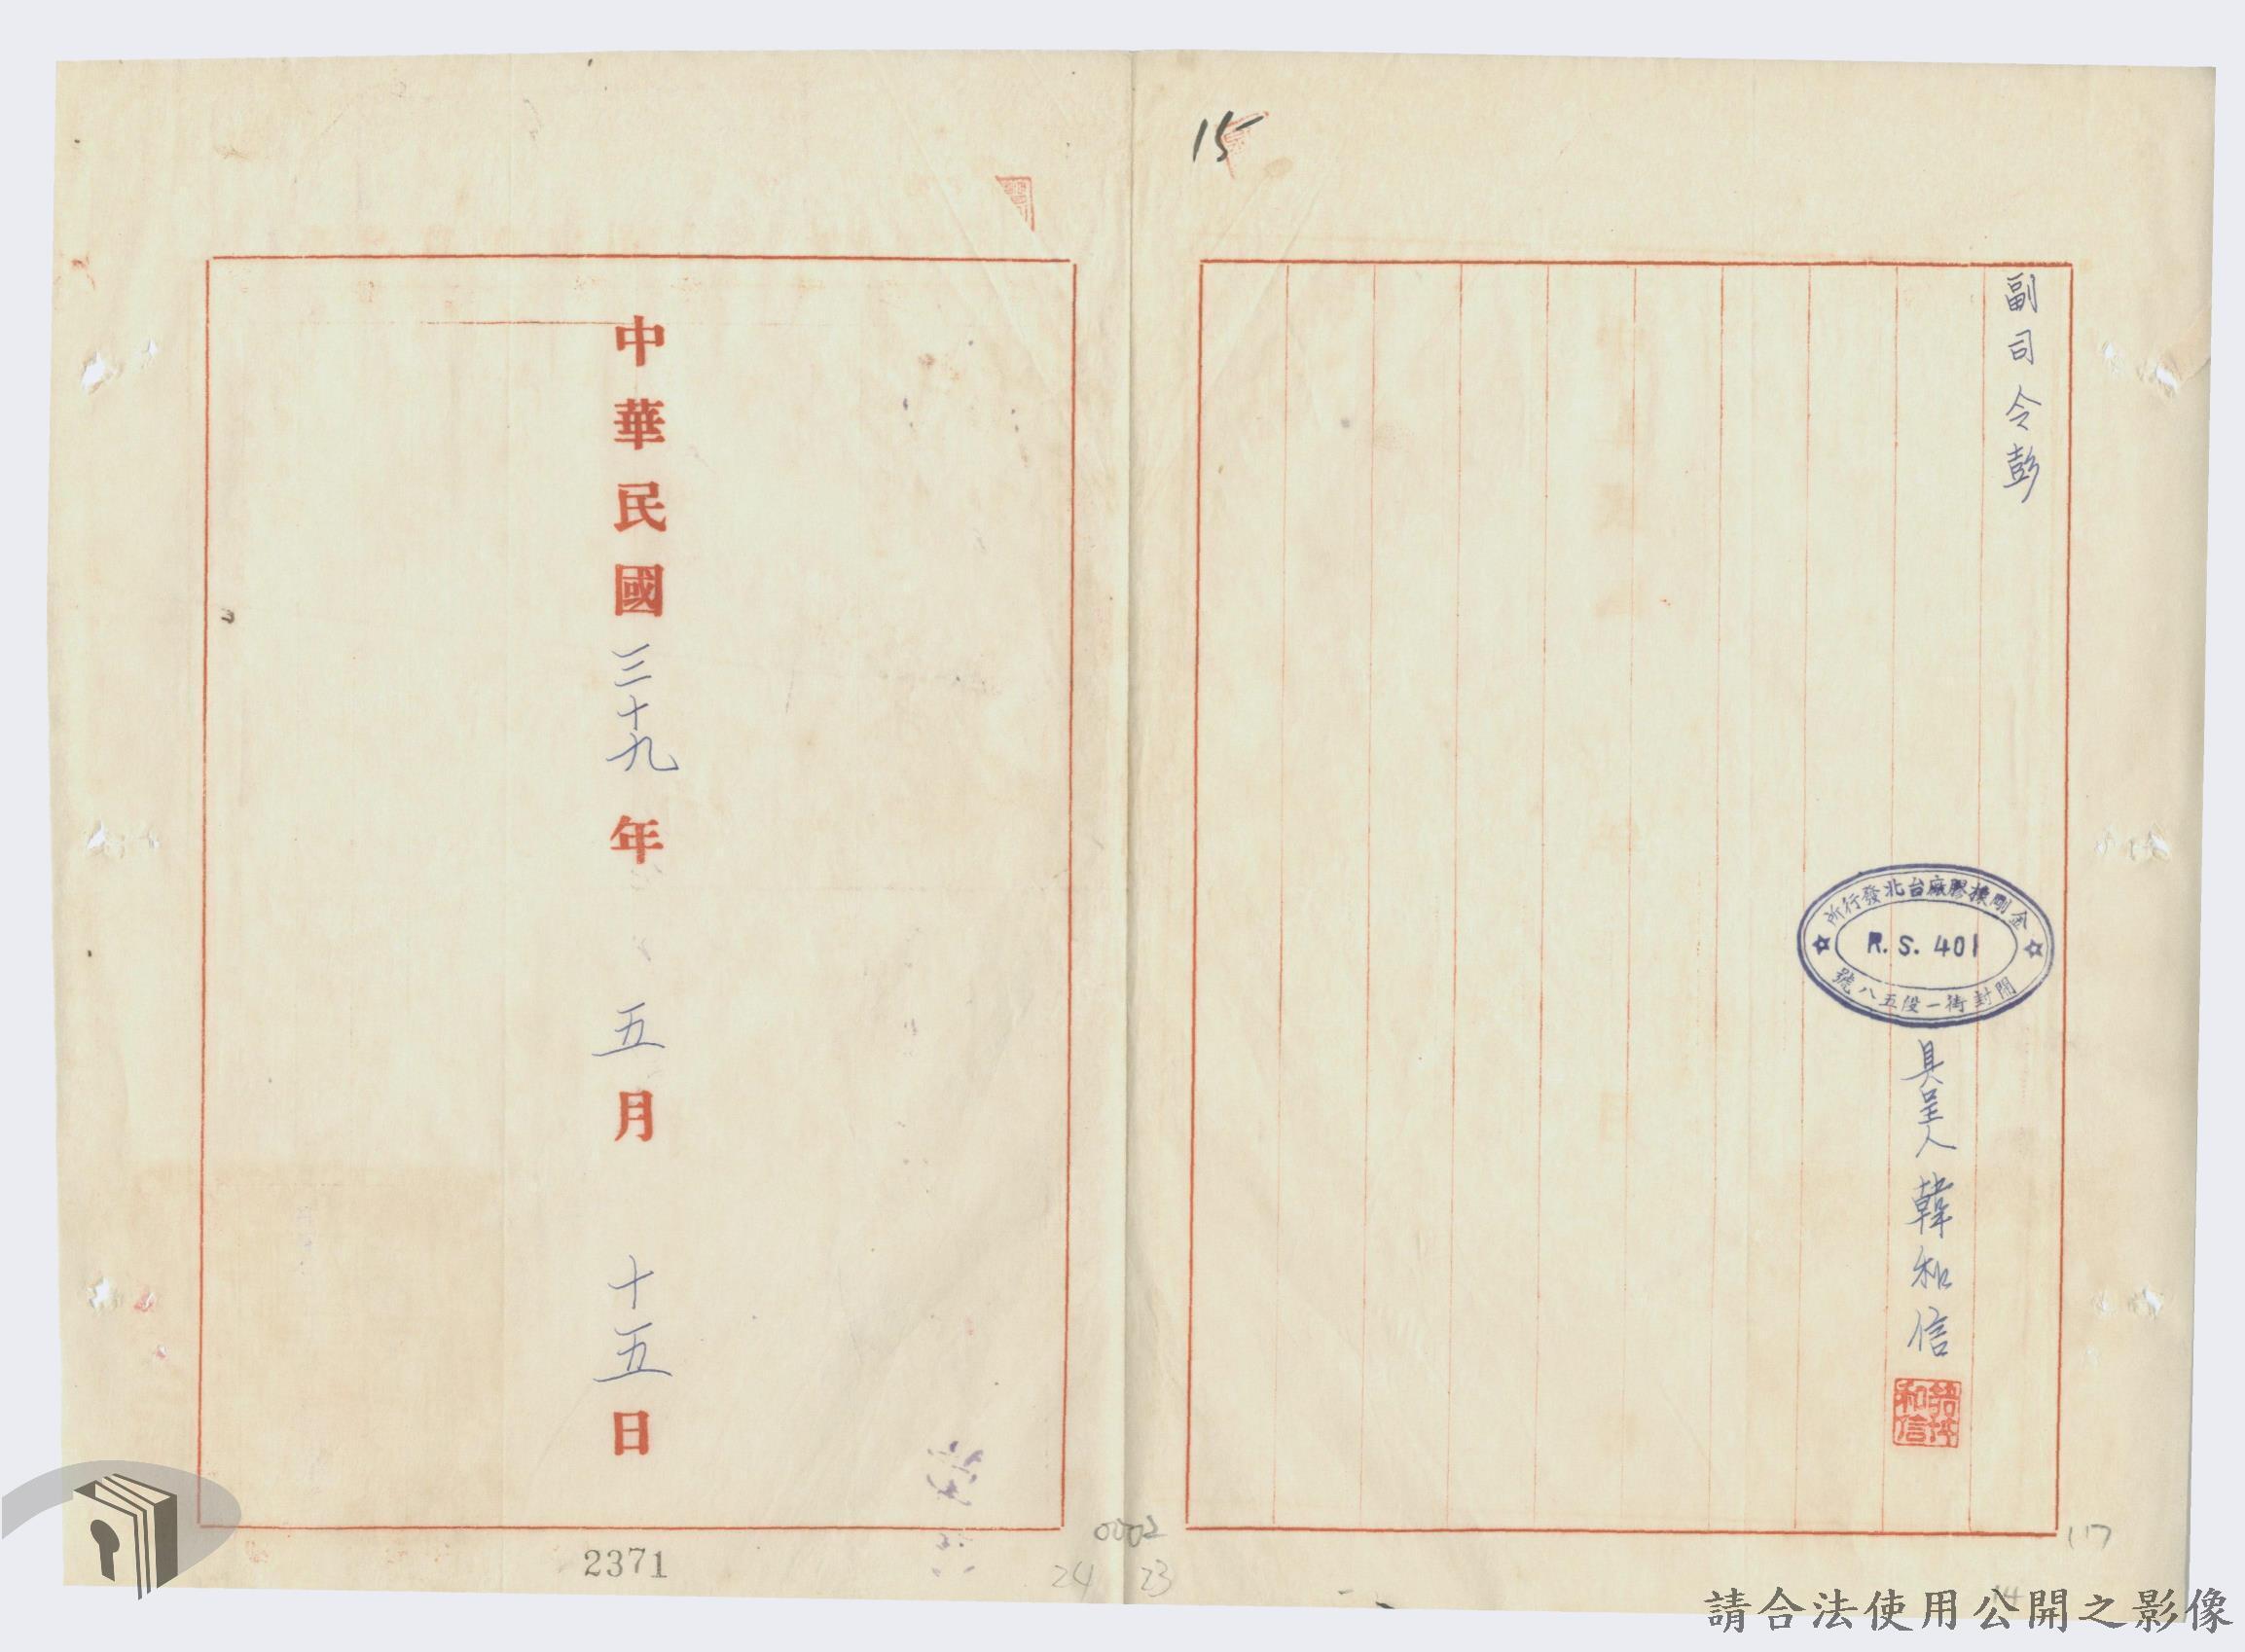 15
副司令彭
金剛橡膠廠台北發行所
R.S. 401
開封街一段五八號
具呈人韓和信
和信
中華民國三十九年五月十五日
0002
24
23
117
14
2371
請合法使用公開之影像